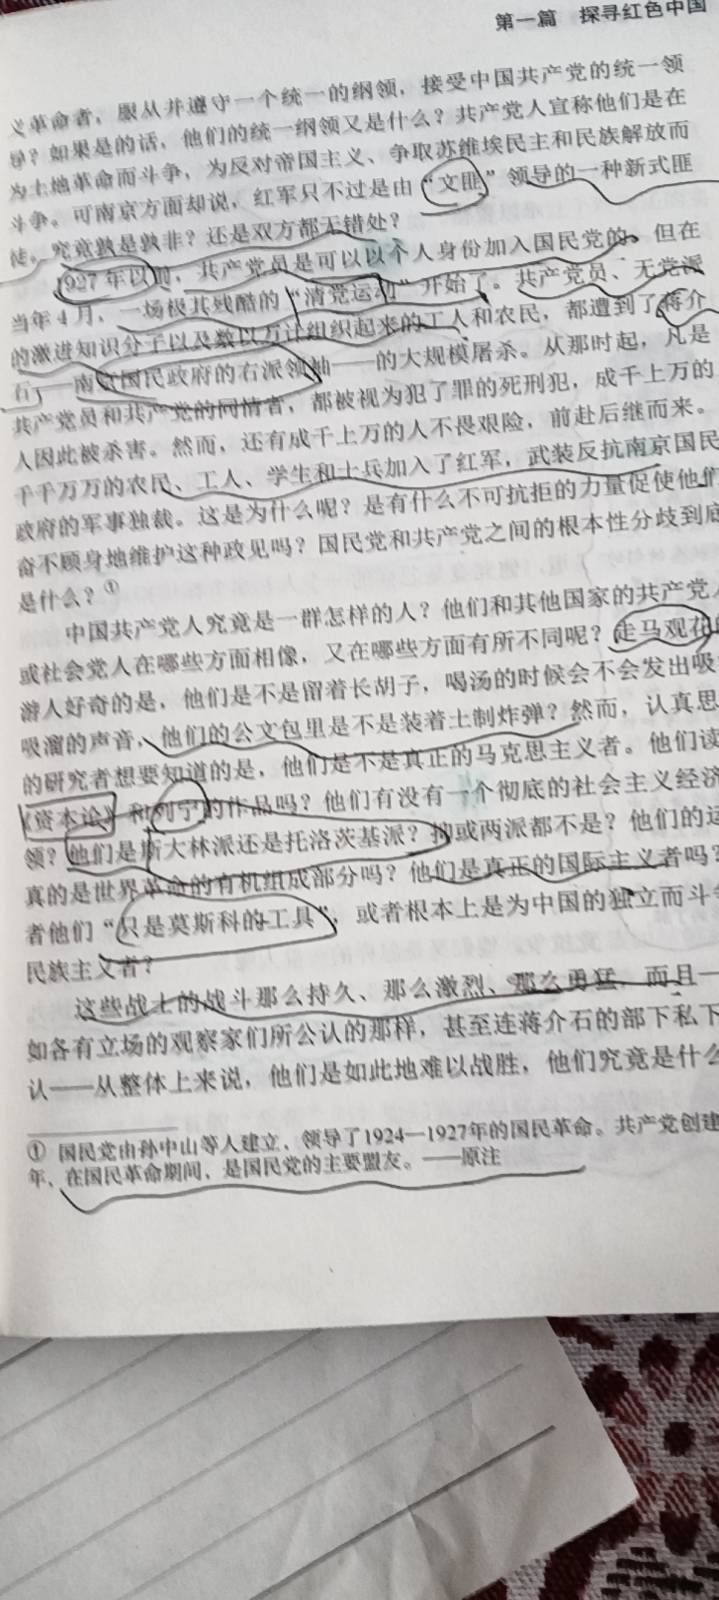 第一篇 探寻红色中国
义革命者，服从并遵守一个统一的纲领，接受中国共产党的统一领
导？如果是的话，他们的统一纲领又是什么？共产党人宣称他们是在
为土地革命而斗争，为反对帝国主义、争取苏维埃民主和民族解放而
斗争。可南京方面却说，红军只不过是由“文匪”领导的一种新式匪
徒。究竟孰是孰非？还是双方都无错处？
1927年以前，共产党员是可以以个人身份加入国民党的。但在
当年4月，一场极其残酷的“清党运动”开始了。共产党员、无党派
的激进知识分子以及数以万计组织起来的工人和农民，都遭到了蒋介
石——南京国民政府的右派领袖——的大规模屠杀。从那时起，凡是
共产党员和共产党的同情者，都被视为犯了罪的死刑犯，成千上万的
人因此被杀害。然而，还有成千上万的人不畏艰险，前赴后继而来。
千千万万的农民、工人、学生和士兵加入了红军，武装反抗南京国民
政府的军事独裁。这是为什么呢？是有什么不可抗拒的力量促使他们
奋不顾身地维护这种政见吗？国民党和共产党之间的根本性分歧到底
是什么？①
中国共产党人究竟是一群怎样的人？他们和其他国家的共产党人
或社会党人在哪些方面相像，又在哪些方面有所不同呢？走马观花的
游人好奇的是，他们是不是留着长胡子，喝汤的时候会不会发出吸
吸溜的声音，他们的公文包里是不是装着土制炸弹？然而，认真思
的研究者想要知道的是，他们是不是真正的马克思主义者。他们读
《资本论》和列宁的作品吗？他们有没有一个彻底的社会主义经济
领？他们是斯大林派还是托洛茨基派？抑或两派都不是？他们的运
真的是世界革命的有机组成部分吗？他们是真正的国际主义者吗？
者他们“只是莫斯科的工具”，或者根本上是为中国的独立而斗争
民族主义者？
这些战士的战斗那么持久、那么激烈、那么勇猛，而且一
如各有立场的观察家们所公认的那样，甚至连蒋介石的部下私下
认——从整体上来说，他们是如此地难以战胜，他们究竟是什么
① 国民党由孙中山等人建立，领导了1924—1927年的国民革命。共产党创建
年，在国民革命期间，是国民党的主要盟友。——原注